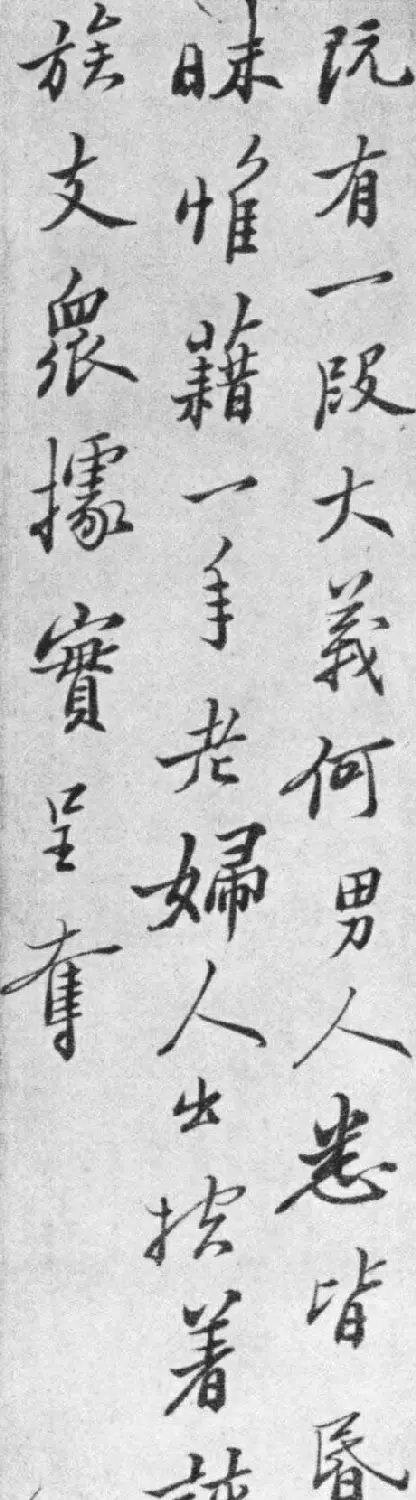 既有一段大義何男人悉皆昏
昧惟藉一手老婦人出控着
族支衆據實呈奪